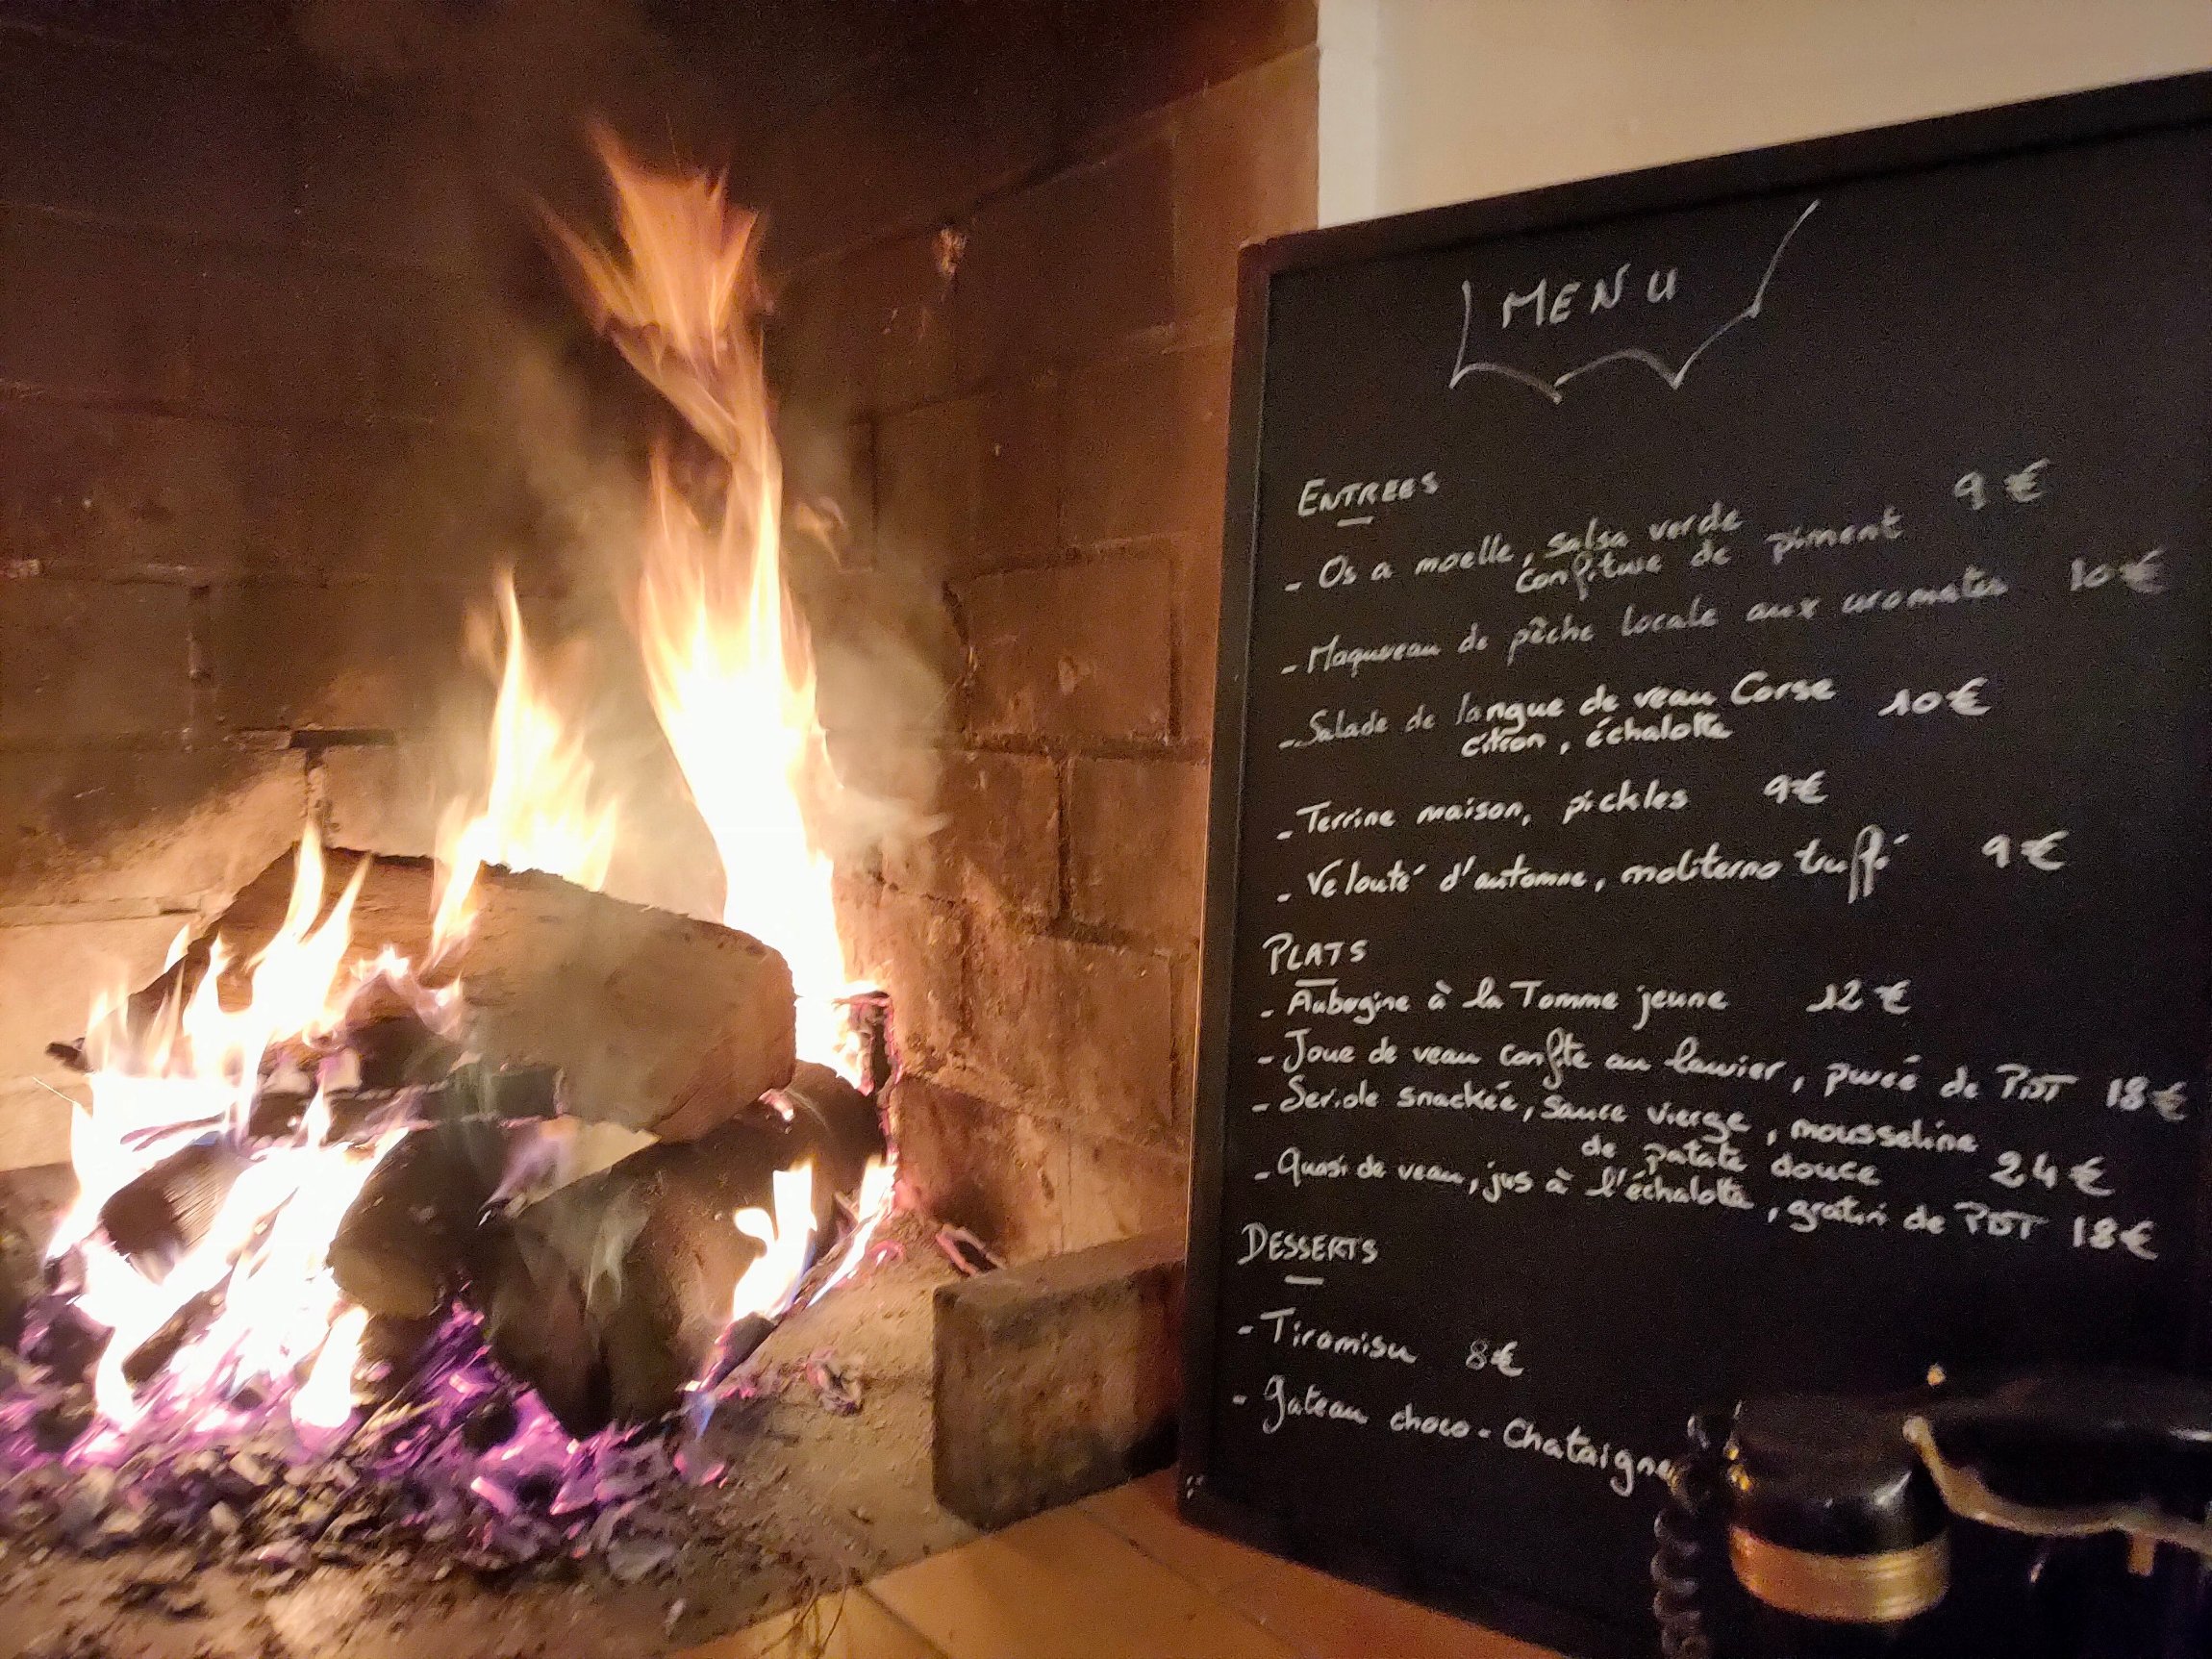 MENU
ENTREES
- Os a moelle, salsa verde 9 €
confiture de piment
- Maquereau de pêche locale aux aromates 10 €
- Salade de langue de veau Corse 10 €
citron, échalotte
- Terrine maison, pickles 9 €
- Velouté d'automne, moliterno truffé 9 €
PLATS
- Aubergine à la Tomme jeune 12 €
- Joue de veau confite au laurier, purée de PDT 18 €
- Seriole snackée, sauce vierge, mousseline
de patate douce 24 €
- Quasi de veau, jus à l'échalotte, gratin de PDT 18 €
DESSERTS
- Tiramisu 8 €
- Gateau choco-Chataigne